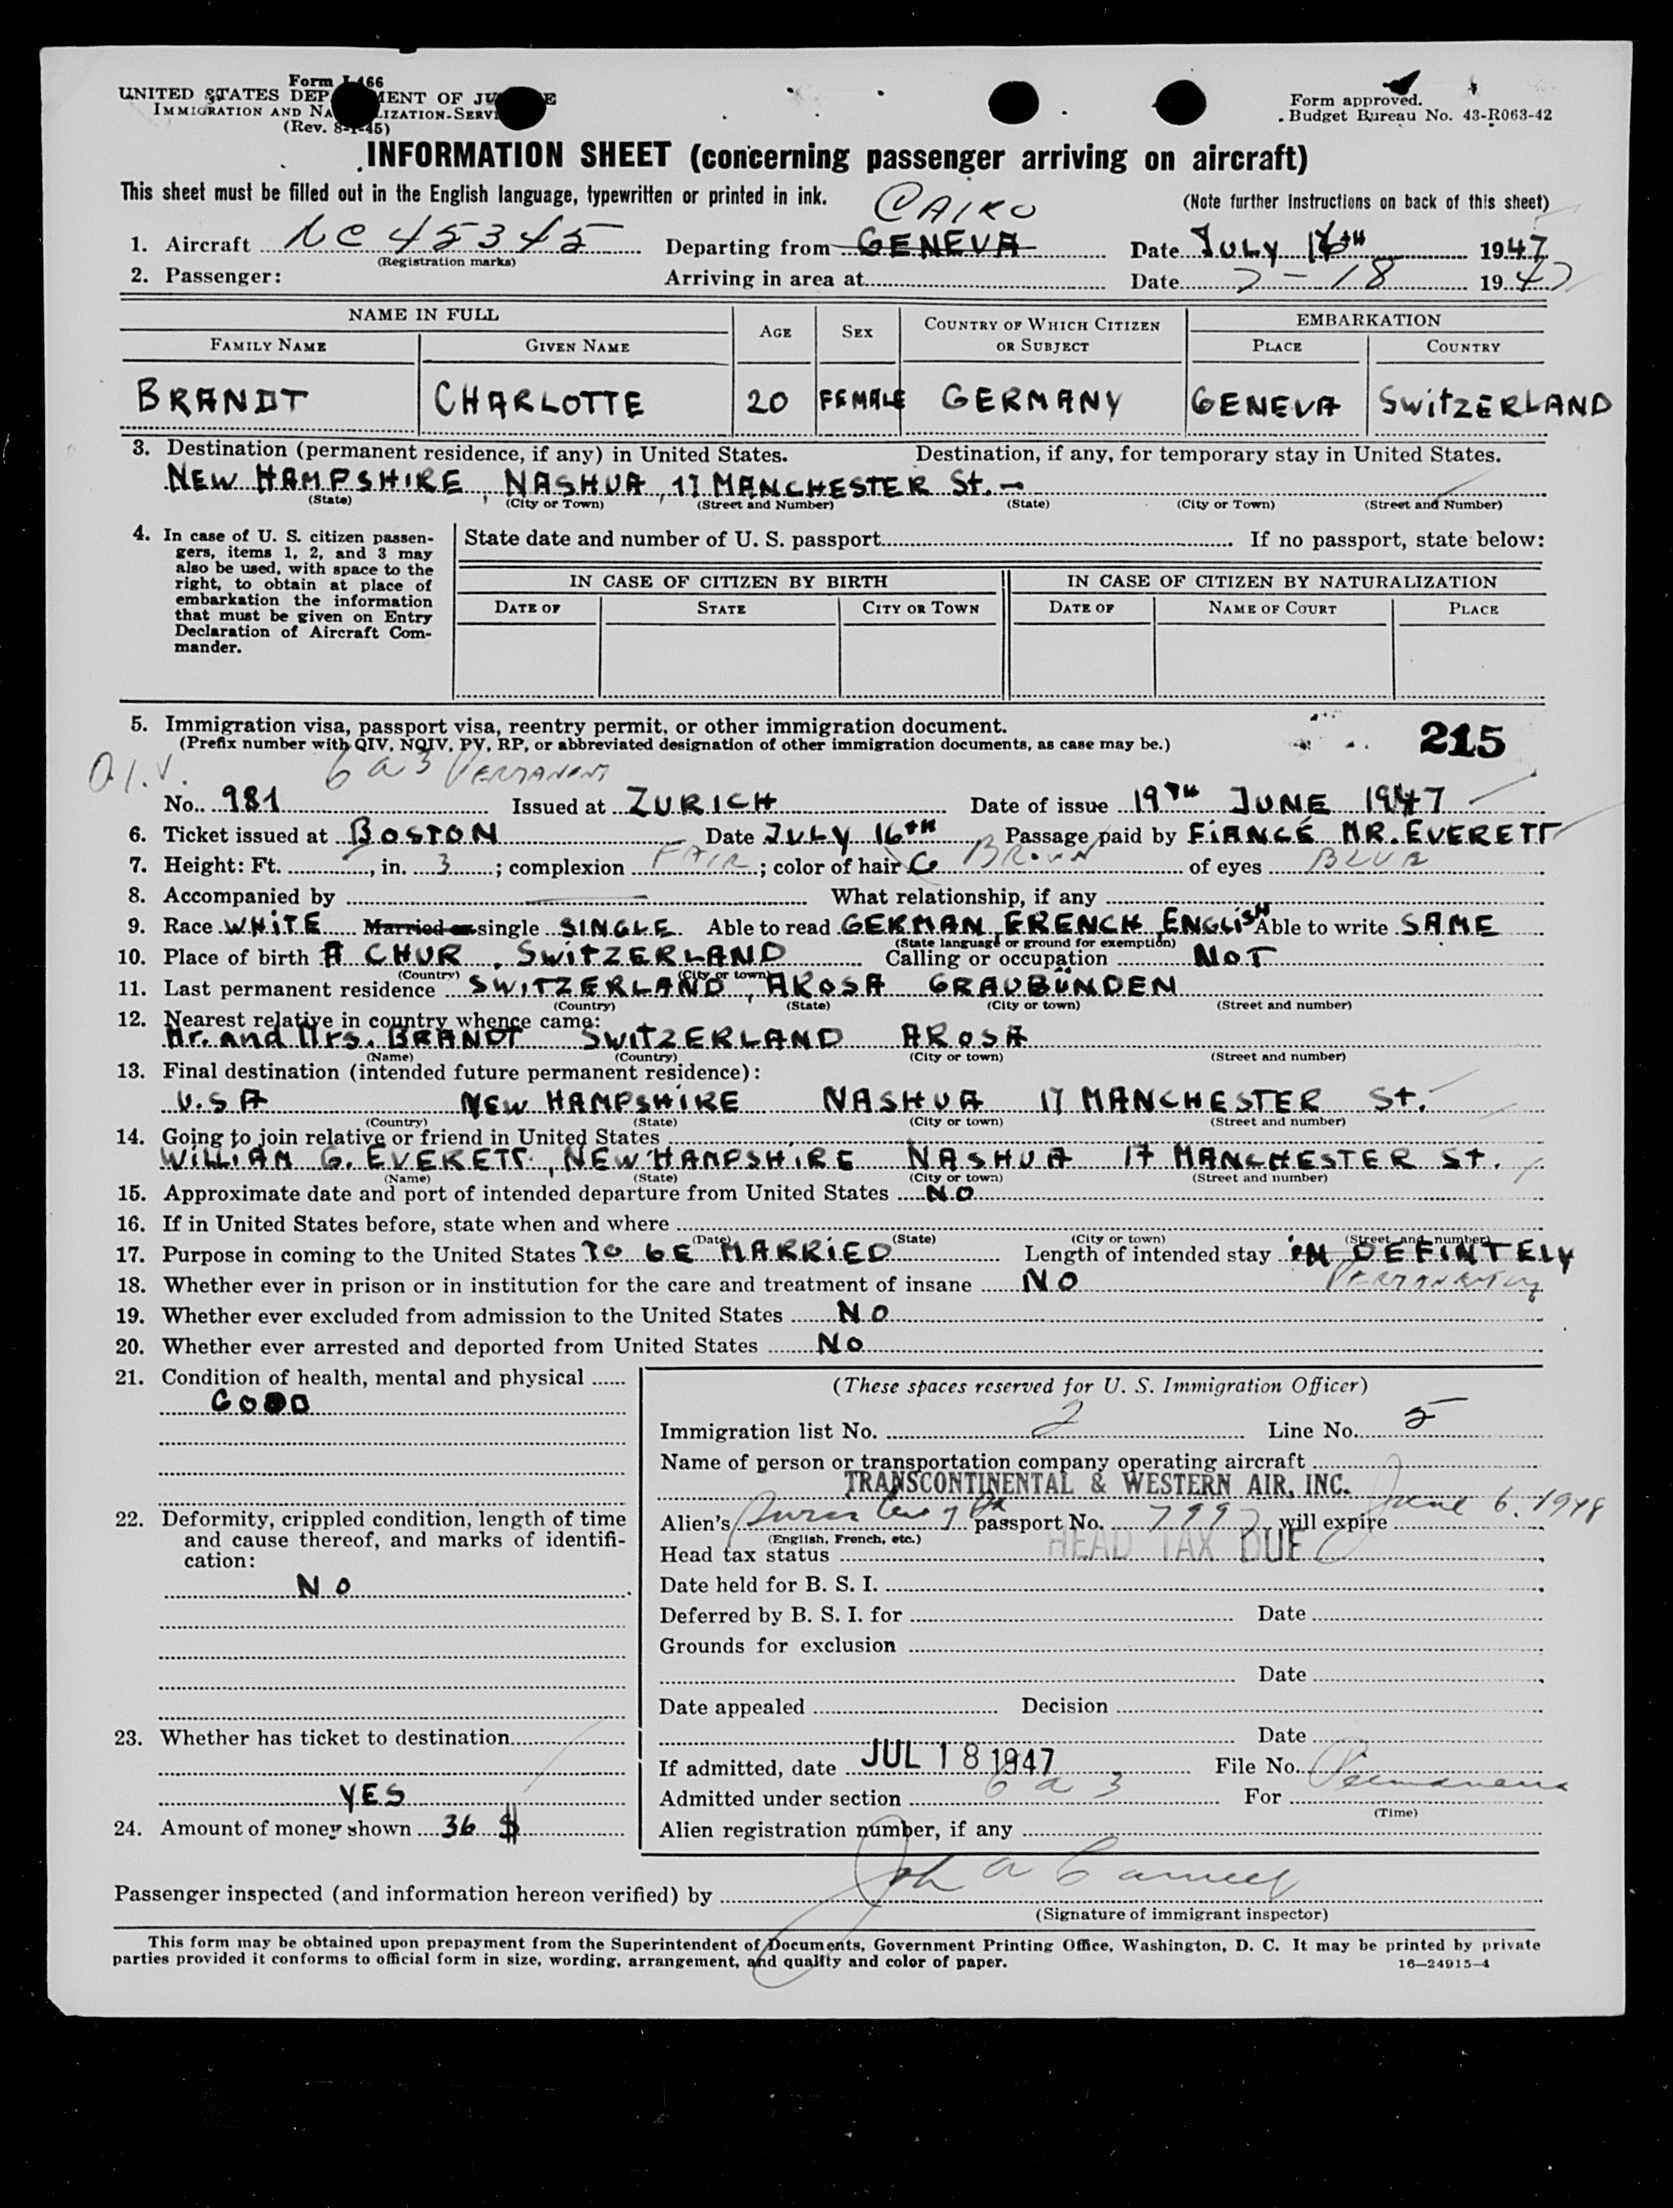 Form I-466
UNITED STATES DEPARTMENT OF JUSTICE
IMMIGRATION AND NATURALIZATION SERVICE
(Rev. 8-1-45)
Form approved.
Budget Bureau No. 43-R063-42
INFORMATION SHEET (concerning passenger arriving on aircraft)
This sheet must be filled out in the English language, typewritten or printed in ink.
(Note further instructions on back of this sheet)
CAIRO
1. Aircraft NC 45345 Departing from GENEVA Date JULY 16TH 1947
(Registration marks)
2. Passenger: Arriving in area at Date 7-18 1947
NAME IN FULL AGE SEX COUNTRY OF WHICH CITIZEN OR SUBJECT EMBARKATION
FAMILY NAME GIVEN NAME PLACE COUNTRY
BRANDT CHARLOTTE 20 FEMALE GERMANY GENEVA SWITZERLAND
3. Destination (permanent residence, if any) in United States. Destination, if any, for temporary stay in United States.
NEW HAMPSHIRE, NASHUA, 17 MANCHESTER St. -
(State) (City or Town) (Street and Number) (State) (City or Town) (Street and Number)
4. In case of U. S. citizen passengers, items 1, 2, and 3 may also be used, with space to the right, to obtain at place of embarkation the information that must be given on Entry Declaration of Aircraft Commander.
State date and number of U. S. passport If no passport, state below:
IN CASE OF CITIZEN BY BIRTH IN CASE OF CITIZEN BY NATURALIZATION
DATE OF STATE CITY OR TOWN DATE OF NAME OF COURT PLACE
5. Immigration visa, passport visa, reentry permit, or other immigration document.
(Prefix number with QIV, NQIV, PV, RP, or abbreviated designation of other immigration documents, as case may be.)
215
Q.I.V. 6 a 3 PERMANENT
No. 981 Issued at ZURICH Date of issue 19TH JUNE 1947
6. Ticket issued at BOSTON Date JULY 16TH Passage paid by FIANCÉ MR. EVERETT
7. Height: Ft. 5, in. 3; complexion FAIR; color of hair BROWN of eyes BLUE
8. Accompanied by What relationship, if any
9. Race WHITE Married or single SINGLE Able to read GERMAN, FRENCH, ENGLISH Able to write SAME
(State language or ground for exemption)
10. Place of birth A CHUR, SWITZERLAND Calling or occupation NOT
(Country) (City or town)
11. Last permanent residence SWITZERLAND, AROSA GRAUBÜNDEN
(Country) (State) (City or town) (Street and number)
12. Nearest relative in country whence came:
Mr. and Mrs. BRANDT SWITZERLAND AROSA
(Name) (Country) (City or town) (Street and number)
13. Final destination (intended future permanent residence):
U.S.A NEW HAMPSHIRE NASHUA 17 MANCHESTER St.
(Country) (State) (City or town) (Street and number)
14. Going to join relative or friend in United States
WILLIAM G. EVERETT, NEW HAMPSHIRE NASHUA 17 MANCHESTER St.
(Name) (State) (City or town) (Street and number)
15. Approximate date and port of intended departure from United States NO
16. If in United States before, state when and where
(Date) (State) (City or town) (Street and number)
17. Purpose in coming to the United States TO BE MARRIED Length of intended stay IN DEFINTELY
PERMANENTLY
18. Whether ever in prison or in institution for the care and treatment of insane NO
19. Whether ever excluded from admission to the United States NO
20. Whether ever arrested and deported from United States NO
21. Condition of health, mental and physical
GOOD
22. Deformity, crippled condition, length of time and cause thereof, and marks of identification:
NO
23. Whether has ticket to destination
YES
24. Amount of money shown 36 $
(These spaces reserved for U. S. Immigration Officer)
Immigration list No. 2 Line No. 5
Name of person or transportation company operating aircraft
TRANSCONTINENTAL & WESTERN AIR, INC.
Alien's passport No. 7997 will expire June 6, 1948
(English, French, etc.)
Head tax status HEAD TAX DUE
Date held for B. S. I.
Deferred by B. S. I. for Date
Grounds for exclusion
Date
Date appealed Decision
Date
If admitted, date JUL 18 1947 File No.
Admitted under section 6 a 3 For Permanent
(Time)
Alien registration number, if any
Passenger inspected (and information hereon verified) by
(Signature of immigrant inspector)
This form may be obtained upon prepayment from the Superintendent of Documents, Government Printing Office, Washington, D. C. It may be printed by private
parties provided it conforms to official form in size, wording, arrangement, and quality and color of paper.
16—24915-4